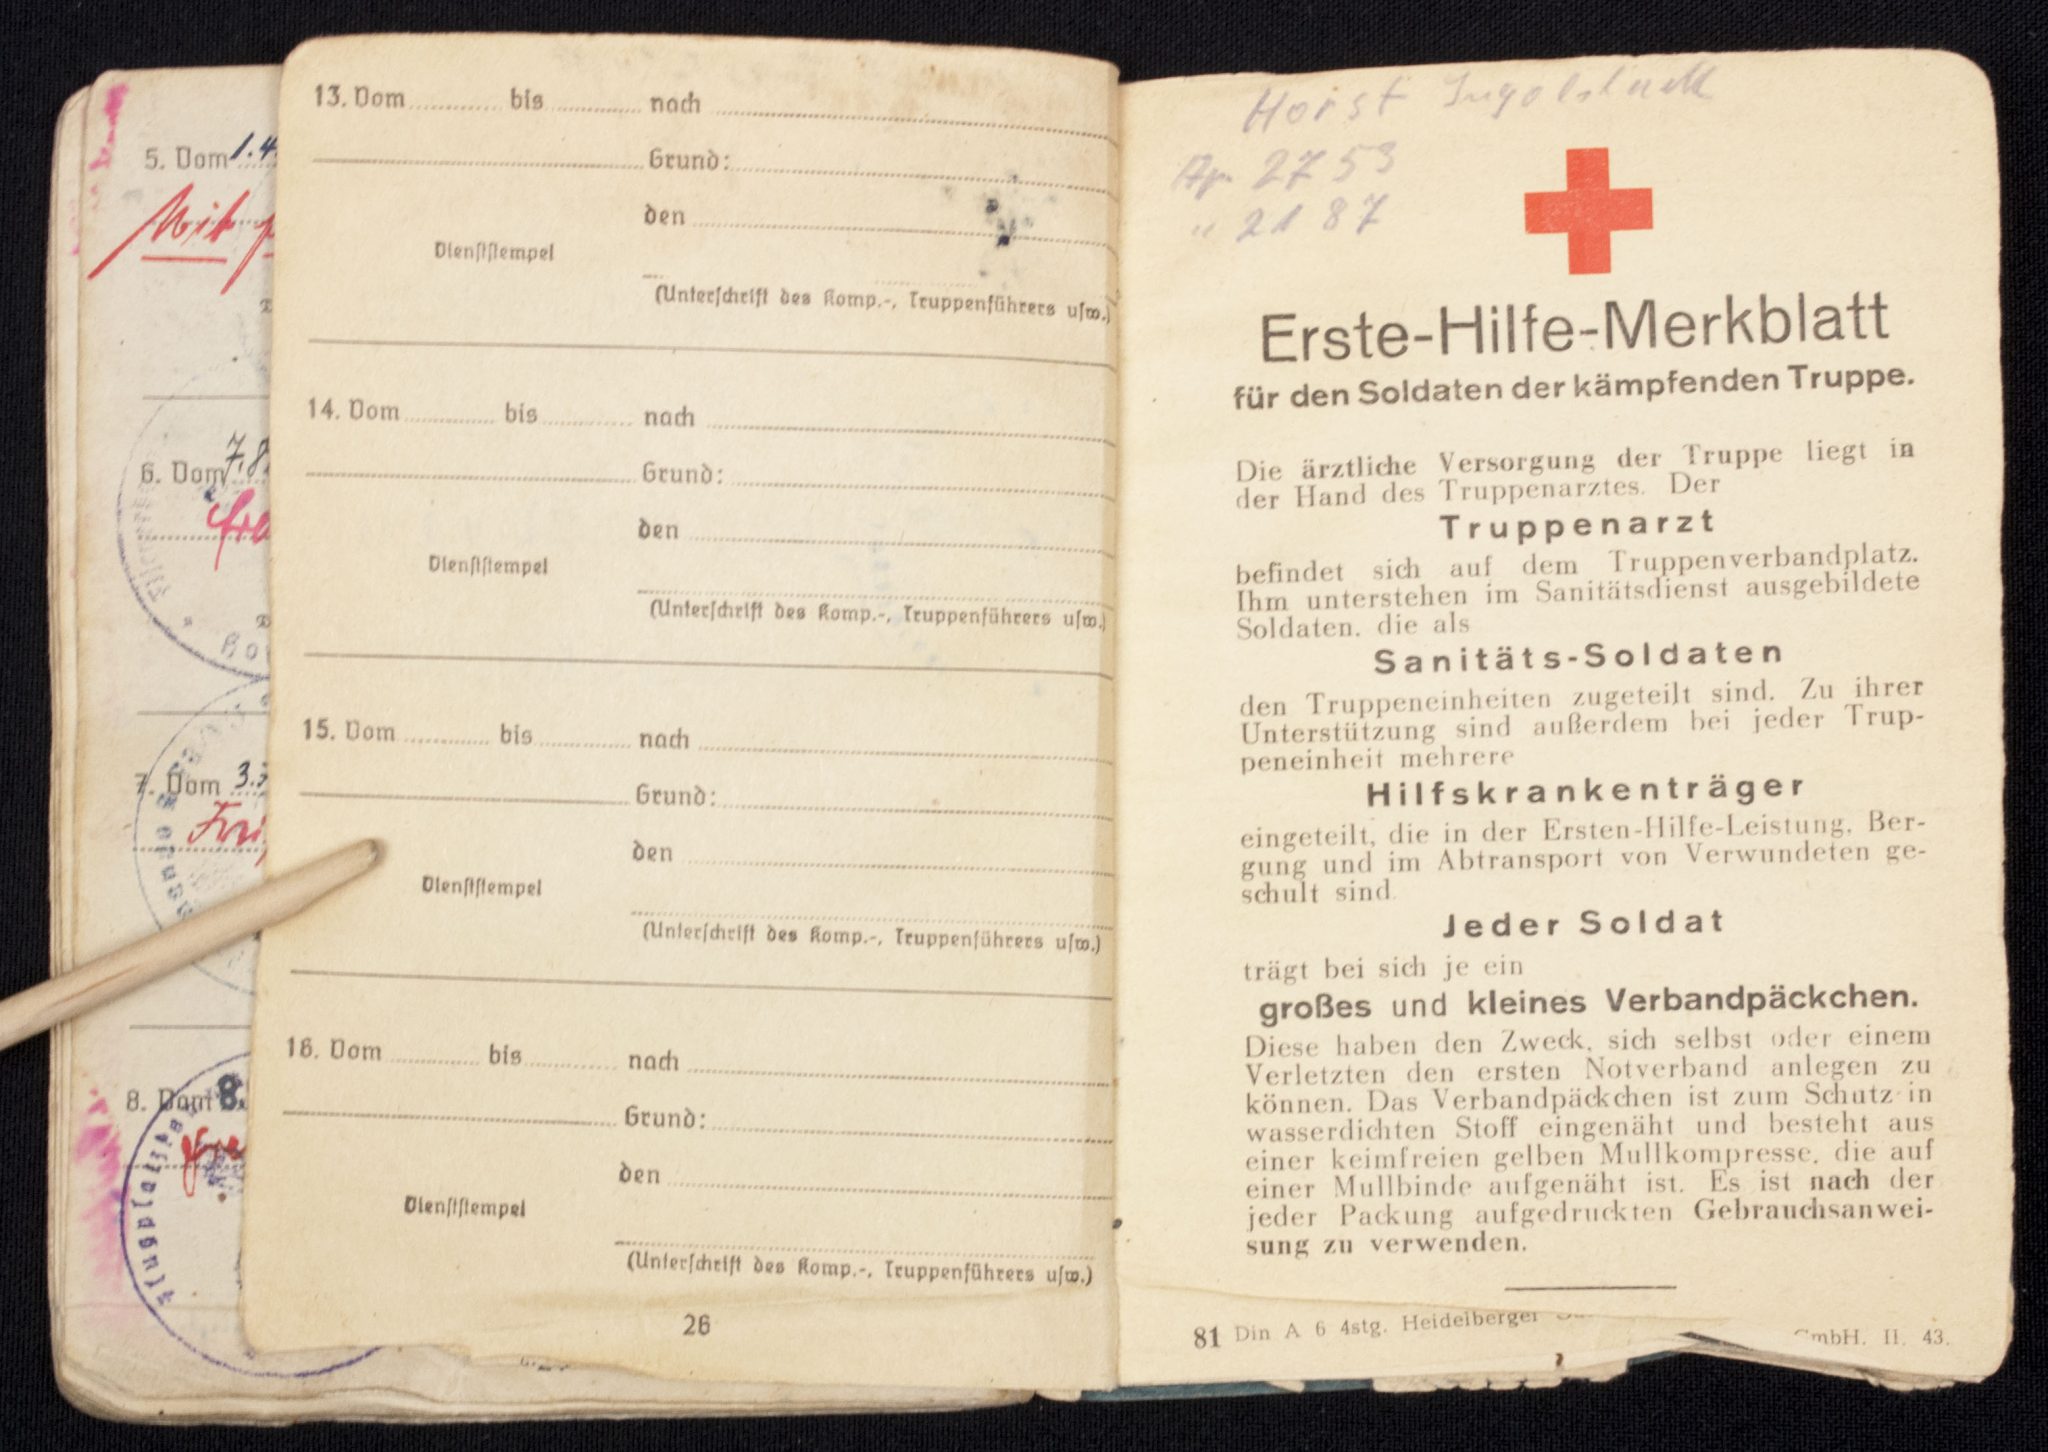 5. Vom 1.4
Mit
6. Vom 7.8.
7. Vom 3.3
8. Vom 8.
13. Vom bis nach
Grund:
den
Dienststempel
(Unterschrift des Komp.-, Truppenführers usw.)
14. Vom bis nach
Grund:
den
Dienststempel
(Unterschrift des Komp.-, Truppenführers usw.)
15. Vom bis nach
Grund:
den
Dienststempel
(Unterschrift des Komp.-, Truppenführers usw.)
16. Vom bis nach
Grund:
den
Dienststempel
(Unterschrift des Komp.-, Truppenführers usw.)
26
Horst Ingolstadt
Ap. 2753
" 2187
Erste-Hilfe-Merkblatt
für den Soldaten der kämpfenden Truppe.
Die ärztliche Versorgung der Truppe liegt in
der Hand des Truppenarztes. Der
Truppenarzt
befindet sich auf dem Truppenverbandplatz.
Ihm unterstehen im Sanitätsdienst ausgebildete
Soldaten, die als
Sanitäts-Soldaten
den Truppeneinheiten zugeteilt sind. Zu ihrer
Unterstützung sind außerdem bei jeder Trup-
peneinheit mehrere
Hilfskrankenträger
eingeteilt, die in der Ersten-Hilfe-Leistung, Ber-
gung und im Abtransport von Verwundeten ge-
schult sind.
Jeder Soldat
trägt bei sich je ein
großes und kleines Verbandpäckchen.
Diese haben den Zweck, sich selbst oder einem
Verletzten den ersten Notverband anlegen zu
können. Das Verbandpäckchen ist zum Schutz in
wasserdichten Stoff eingenäht und besteht aus
einer keimfreien gelben Mullkompresse, die auf
einer Mullbinde aufgenäht ist. Es ist nach der
jeder Packung aufgedruckten Gebrauchsanwei-
sung zu verwenden.
81 Din A 6 4stg. Heidelberger GmbH. II. 43.